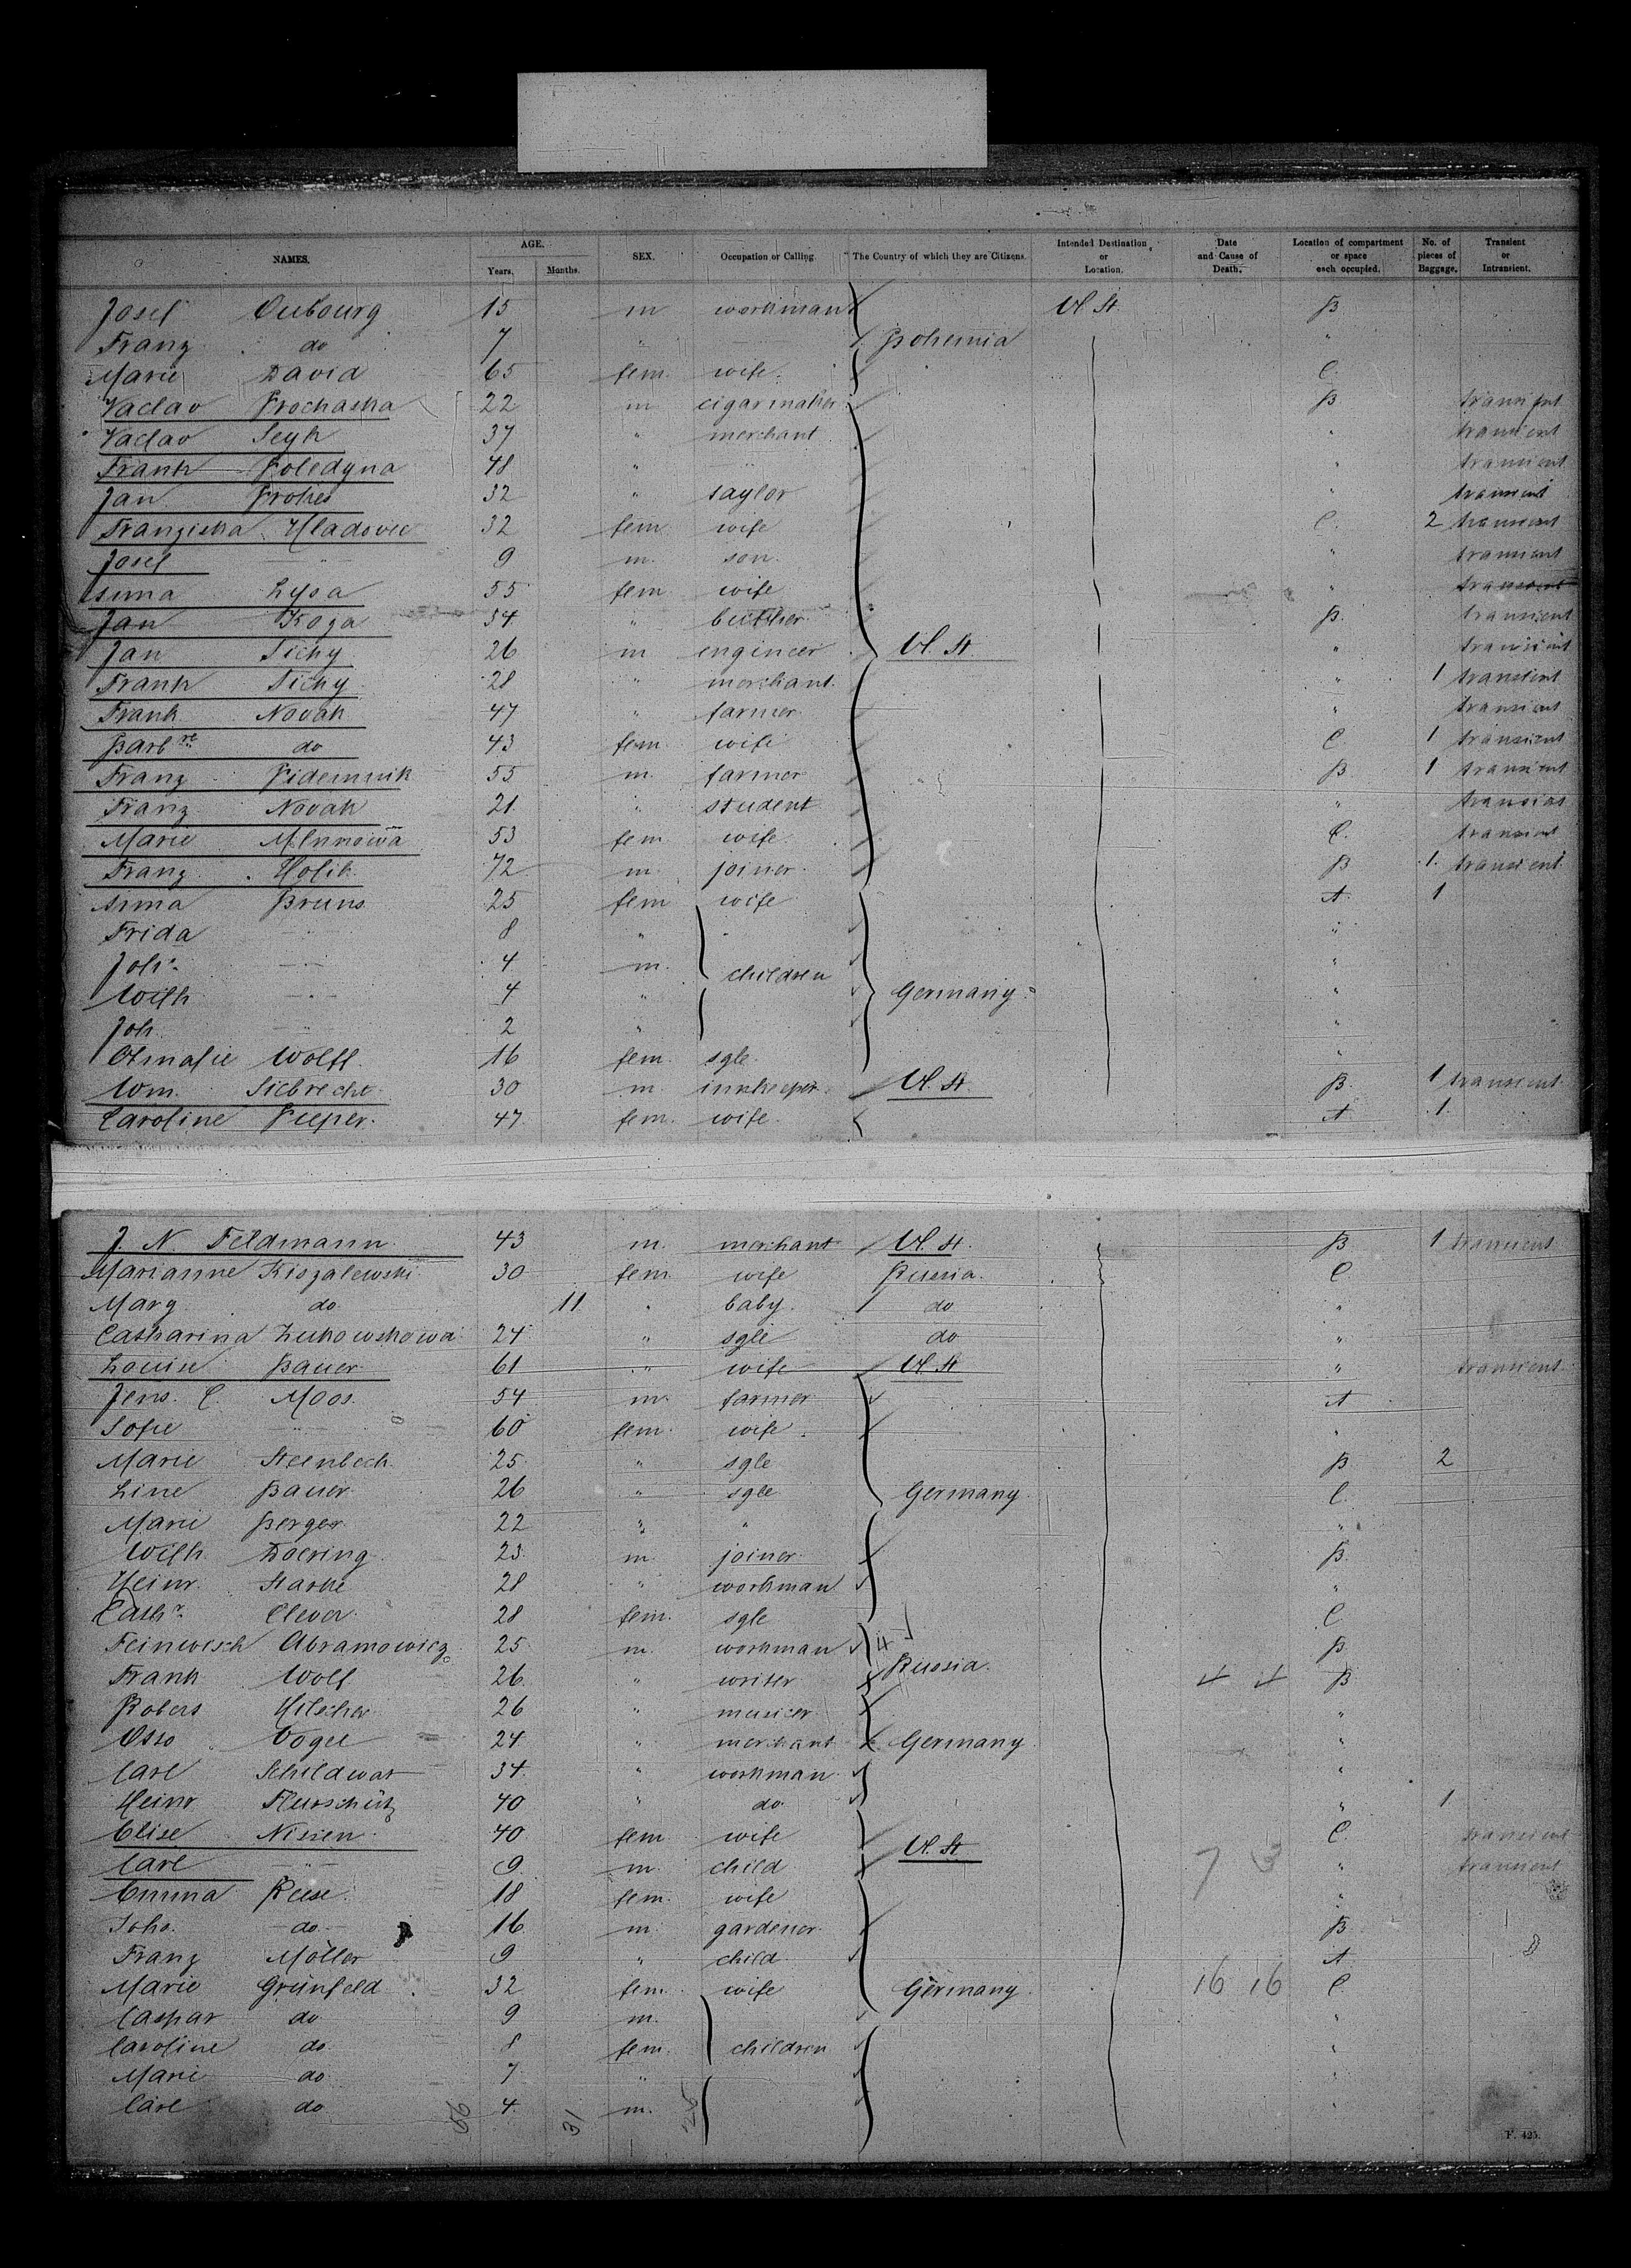 NAMES. AGE. Years. Months. SEX. Occupation or Calling. The Country of which they are Citizens. Intended Destination or Location. Date and Cause of Death. Location of compartment or space each occupied. No. of pieces of Baggage. Transient or Intransient.
Josef 15 m workman U. St. B
Franz do 7 " Bohemia "
Marie David 65 fem. wife C.
Vaclav Prochaska 22 m cigarmaker B transient
Vaclav Seyk 37 " merchant " transient
Frank Poledyna 48 " " " transient
Jan Prokes 32 " taylor " transient
Franziska Hladovec 32 fem wife C. 2 transient
Josef 9 m. son. " transient
Anna Lysa 55 fem wife " transient
Jan Koza 54 " butcher B. transient
Jan Tichy 26 m engineer U. St. " transient
Frank Tichy 28 " merchant. " 1 transient
Frank Novak 47 " farmer " transient
Barb. do 43 fem. wife C 1 transient
Franz 55 m. farmer B 1 transient
Franz Novak 21. " student " transient
Marie 53 fem wife C. transient
Franz Holik 72 m. joiner. B 1. transient
Anna Bruns 25 fem wife A. 1
Frida " 8 " "
Joh. " 4 m. children "
Wilh " 4 " Germany. "
Joh. " 2 " "
Otmalie Wolff. 16 fem. sgle. "
Wm. Siebrecht 30 m. innkeeper. U. St. B. 1 transient.
Caroline Pieper. 47 fem. wife. A 1.
J. N. Feldmann. 43 m. merchant U. St. B 1 transient
Marianne Kiszalewski 30 fem wife Russia. C
Marg. do 11 " baby. do "
Catharina 24 " sgle do "
Louise Bauer 61 " wife U. St " transient.
Jens. C. Moos. 54 m. farmer A
Sofie " 60 fem. wife. "
Marie Steenbeck. 25 " sgle B 2
Line Bauer 26 " sgle Germany. C.
Marie Berger 22 " " "
Wilh. Doering. 23. m joiner. B.
Heinr. Starke 28 " workman "
Cath. Clever. 28 fem. sgle C
Abramowicz 25 m. workman 4 B
Frank Wolf 26 " writer Russia. 4 4 B
Robert 26 " musicer "
Otto Vogel 24 " merchant Germany. "
Carl Schildwat 34 " workman "
Heinr 40 " do " 1
Elise Nissen 40 fem wife U. St. C. transient
Carl " 9 m. child 7 3 " transient
Emma Reese. 18 fem. wife "
Joho. do 16 m. gardener. B
Franz Möller 9 " child A
Marie Grünfeld 32 fem. wife Germany. 16 16 C
Caspar do 9 m. "
Caroline do 8 fem. children "
Marie do 7 " "
Carl do 4 m. "
56 31 25
F. 425.